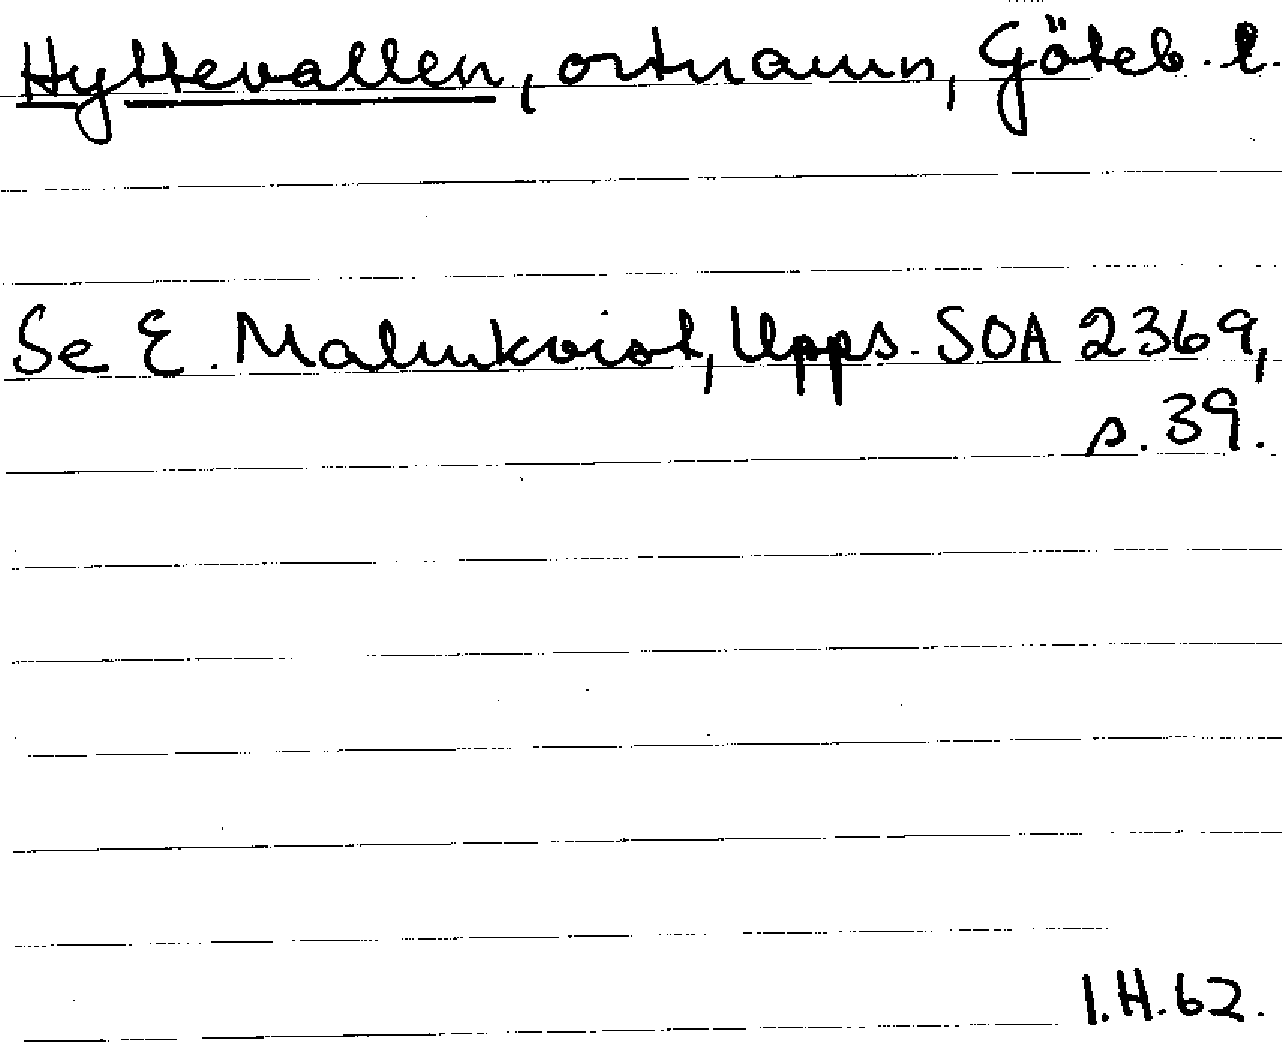 Hyttevallen, ortnamn, Göteb. l.
Se E. Malmkvist, Upps. SOA 2369,
s. 39.
I.H. 62.